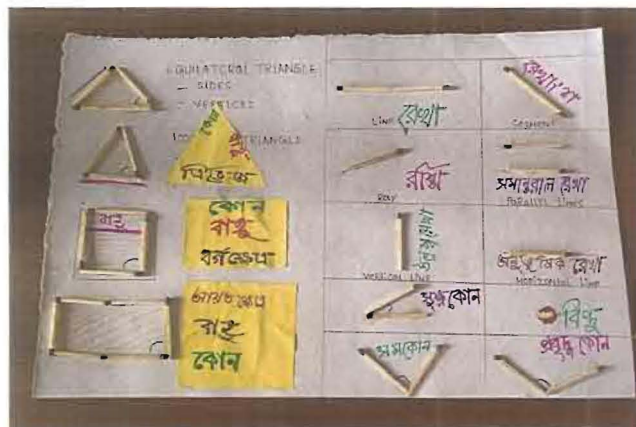 EQUILATORAL TRIANGLE
- SIDES
- VERTICES
TRIANGLE
কোন
বাহু
ত্রিভুজ
বাহু
কোন
বাহু
বর্গক্ষেত্র
আয়তক্ষেত্র
বাহু
কোন
LINE রেখা
রেখাংশ
SEGMENT
রশ্মি
RAY
সমান্তরাল রেখা
PARALLEL LINES
উলম্ব রেখা
VERTICAL LINE
অনুভূমিক রেখা
HORIZONTAL LINE
সূক্ষ্মকোন
বিন্দু
সমকোন
প্রবৃদ্ধ কোন